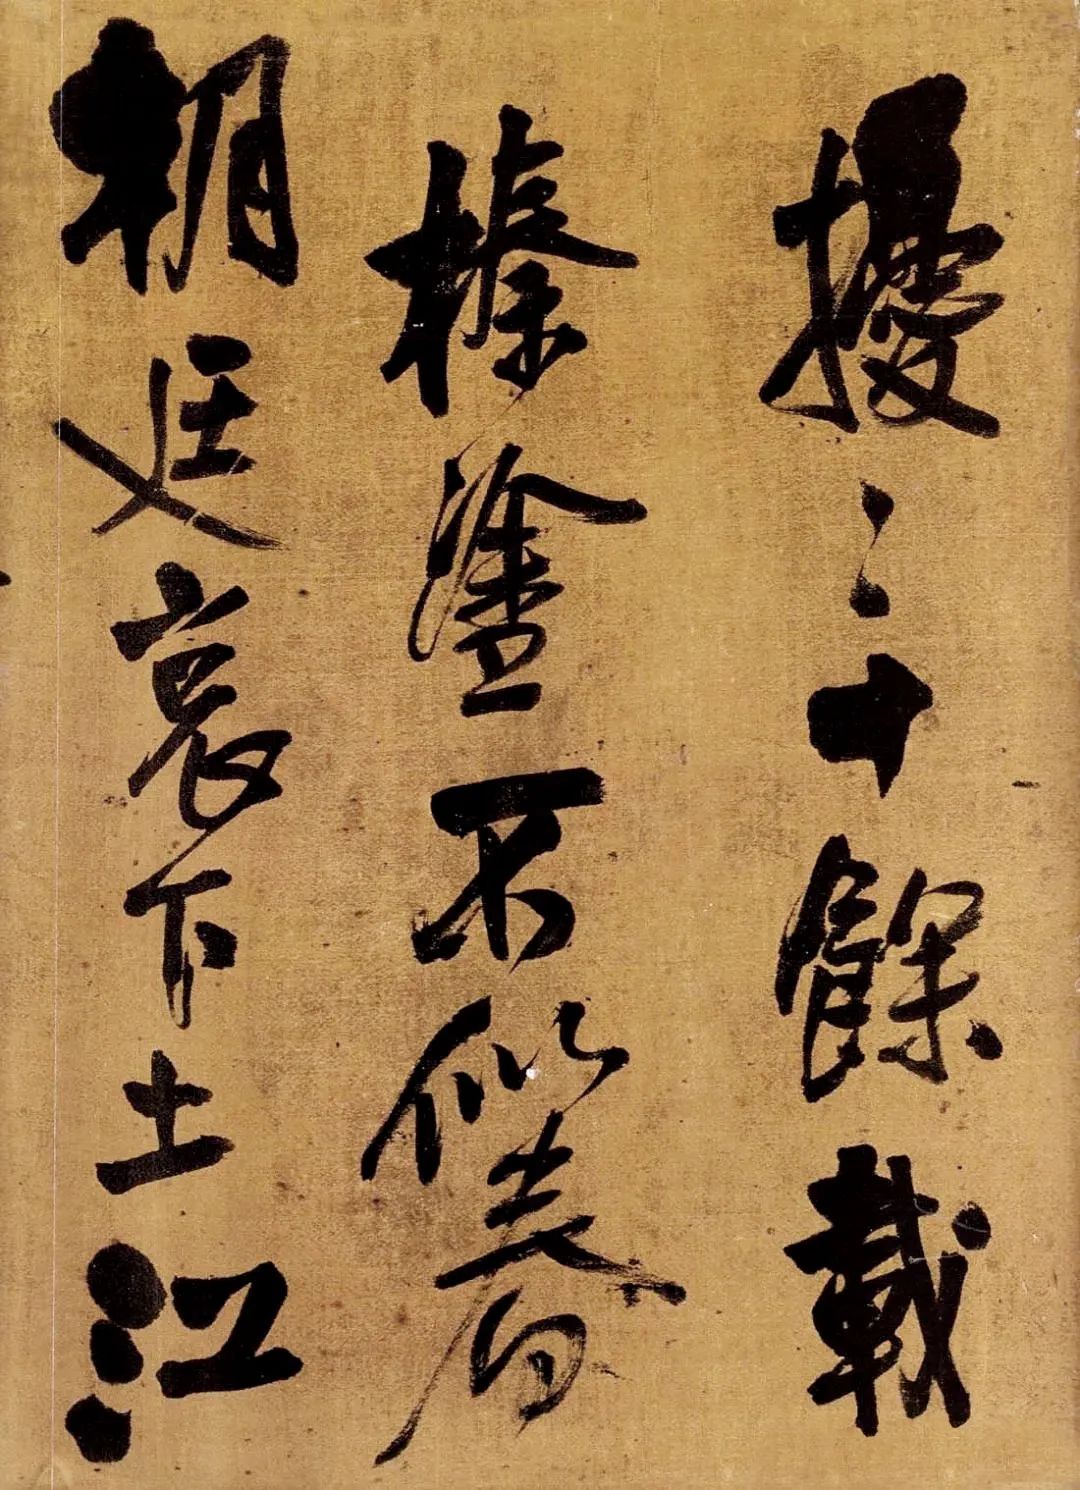 擾〻十餘載
榛塗不似春
朝廷哀下土江